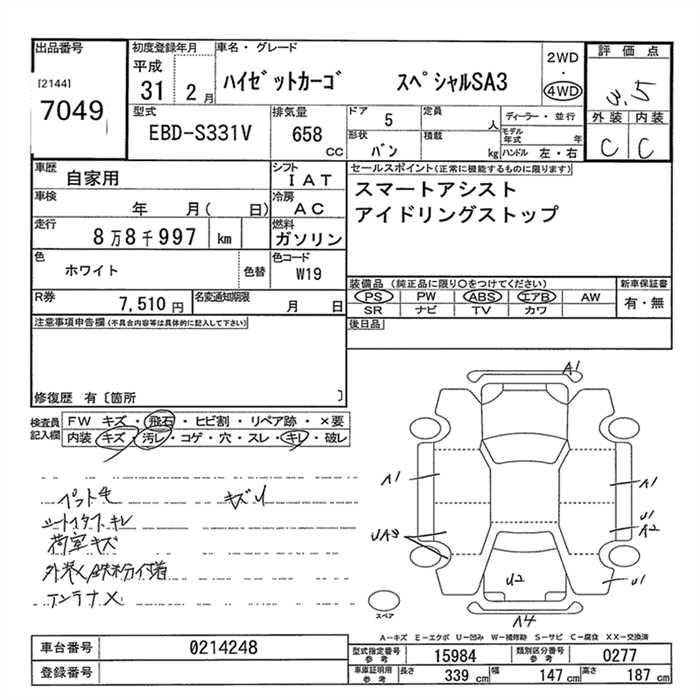 出品番号
[2144]
7049
初度登録年月
平成
31 2月
車名・グレード
ハイゼットカーゴ スペシャルSA3
2WD
・
4WD
評価点
3.5
外装 内装
C C
型式
EBD-S331V
排気量
658 CC
ドア 5
定員 人
形状 バン
積載 kg
ディーラー・並行
モデル年式 年
ハンドル 左・右
車歴 自家用
シフト IAT
車検 年 月( 日)
冷房 AC
走行 8万8千997 km
燃料 ガソリン
色 ホワイト 色替
色コード W19
R券 7,510円
名変通知期限 月 日
セールスポイント(正常に機能するものに限ります)
スマートアシスト
アイドリングストップ
装備品(純正品に限り○をつけてください)
PS PW ABS エアB AW
SR ナビ TV カワ
新車保証書
有・無
後日品
注意事項申告欄(不具合内容等は具体的に記入して下さい)
修復歴 有〔箇所 〕
検査員記入欄
FW キズ・飛石・ヒビ割・リペア跡・×要
内装 キズ・汚レ・コゲ・穴・スレ・キレ・破レ
ペット毛 キズU
シートイタスキレ
荷室キズ
アンテナX
A1
A1
A1
U1
A2
UA3
U2
U1
A4
スペア
A-キズ E-エクボ U-凹み W-補修跡 S-サビ C-腐食 XX-交換済
車台番号 0214248
登録番号
型式指定番号 参考 15984
類別区分番号 参考 0277
車庫証明用 参考 長さ 339 cm 幅 147 cm 高さ 187 cm